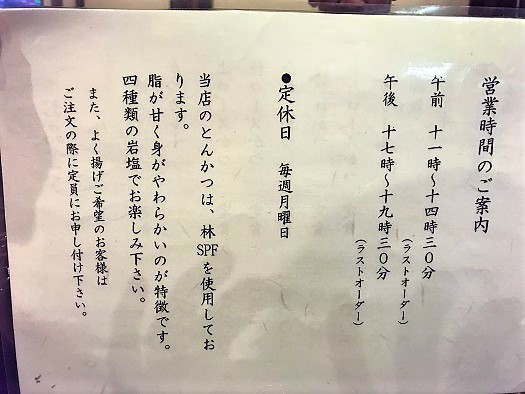 営業時間のご案内
午前　十一時～十四時三０分
（ラストオーダー）
午後　十七時～十九時三０分
（ラストオーダー）
●定休日　毎週月曜日
当店のとんかつは、林SPFを使用してお
ります。
脂が甘く身がやわらかいのが特徴です。
四種類の岩塩でお楽しみ下さい。
また、よく揚げご希望のお客様は
ご注文の際に定員にお申し付け下さい。